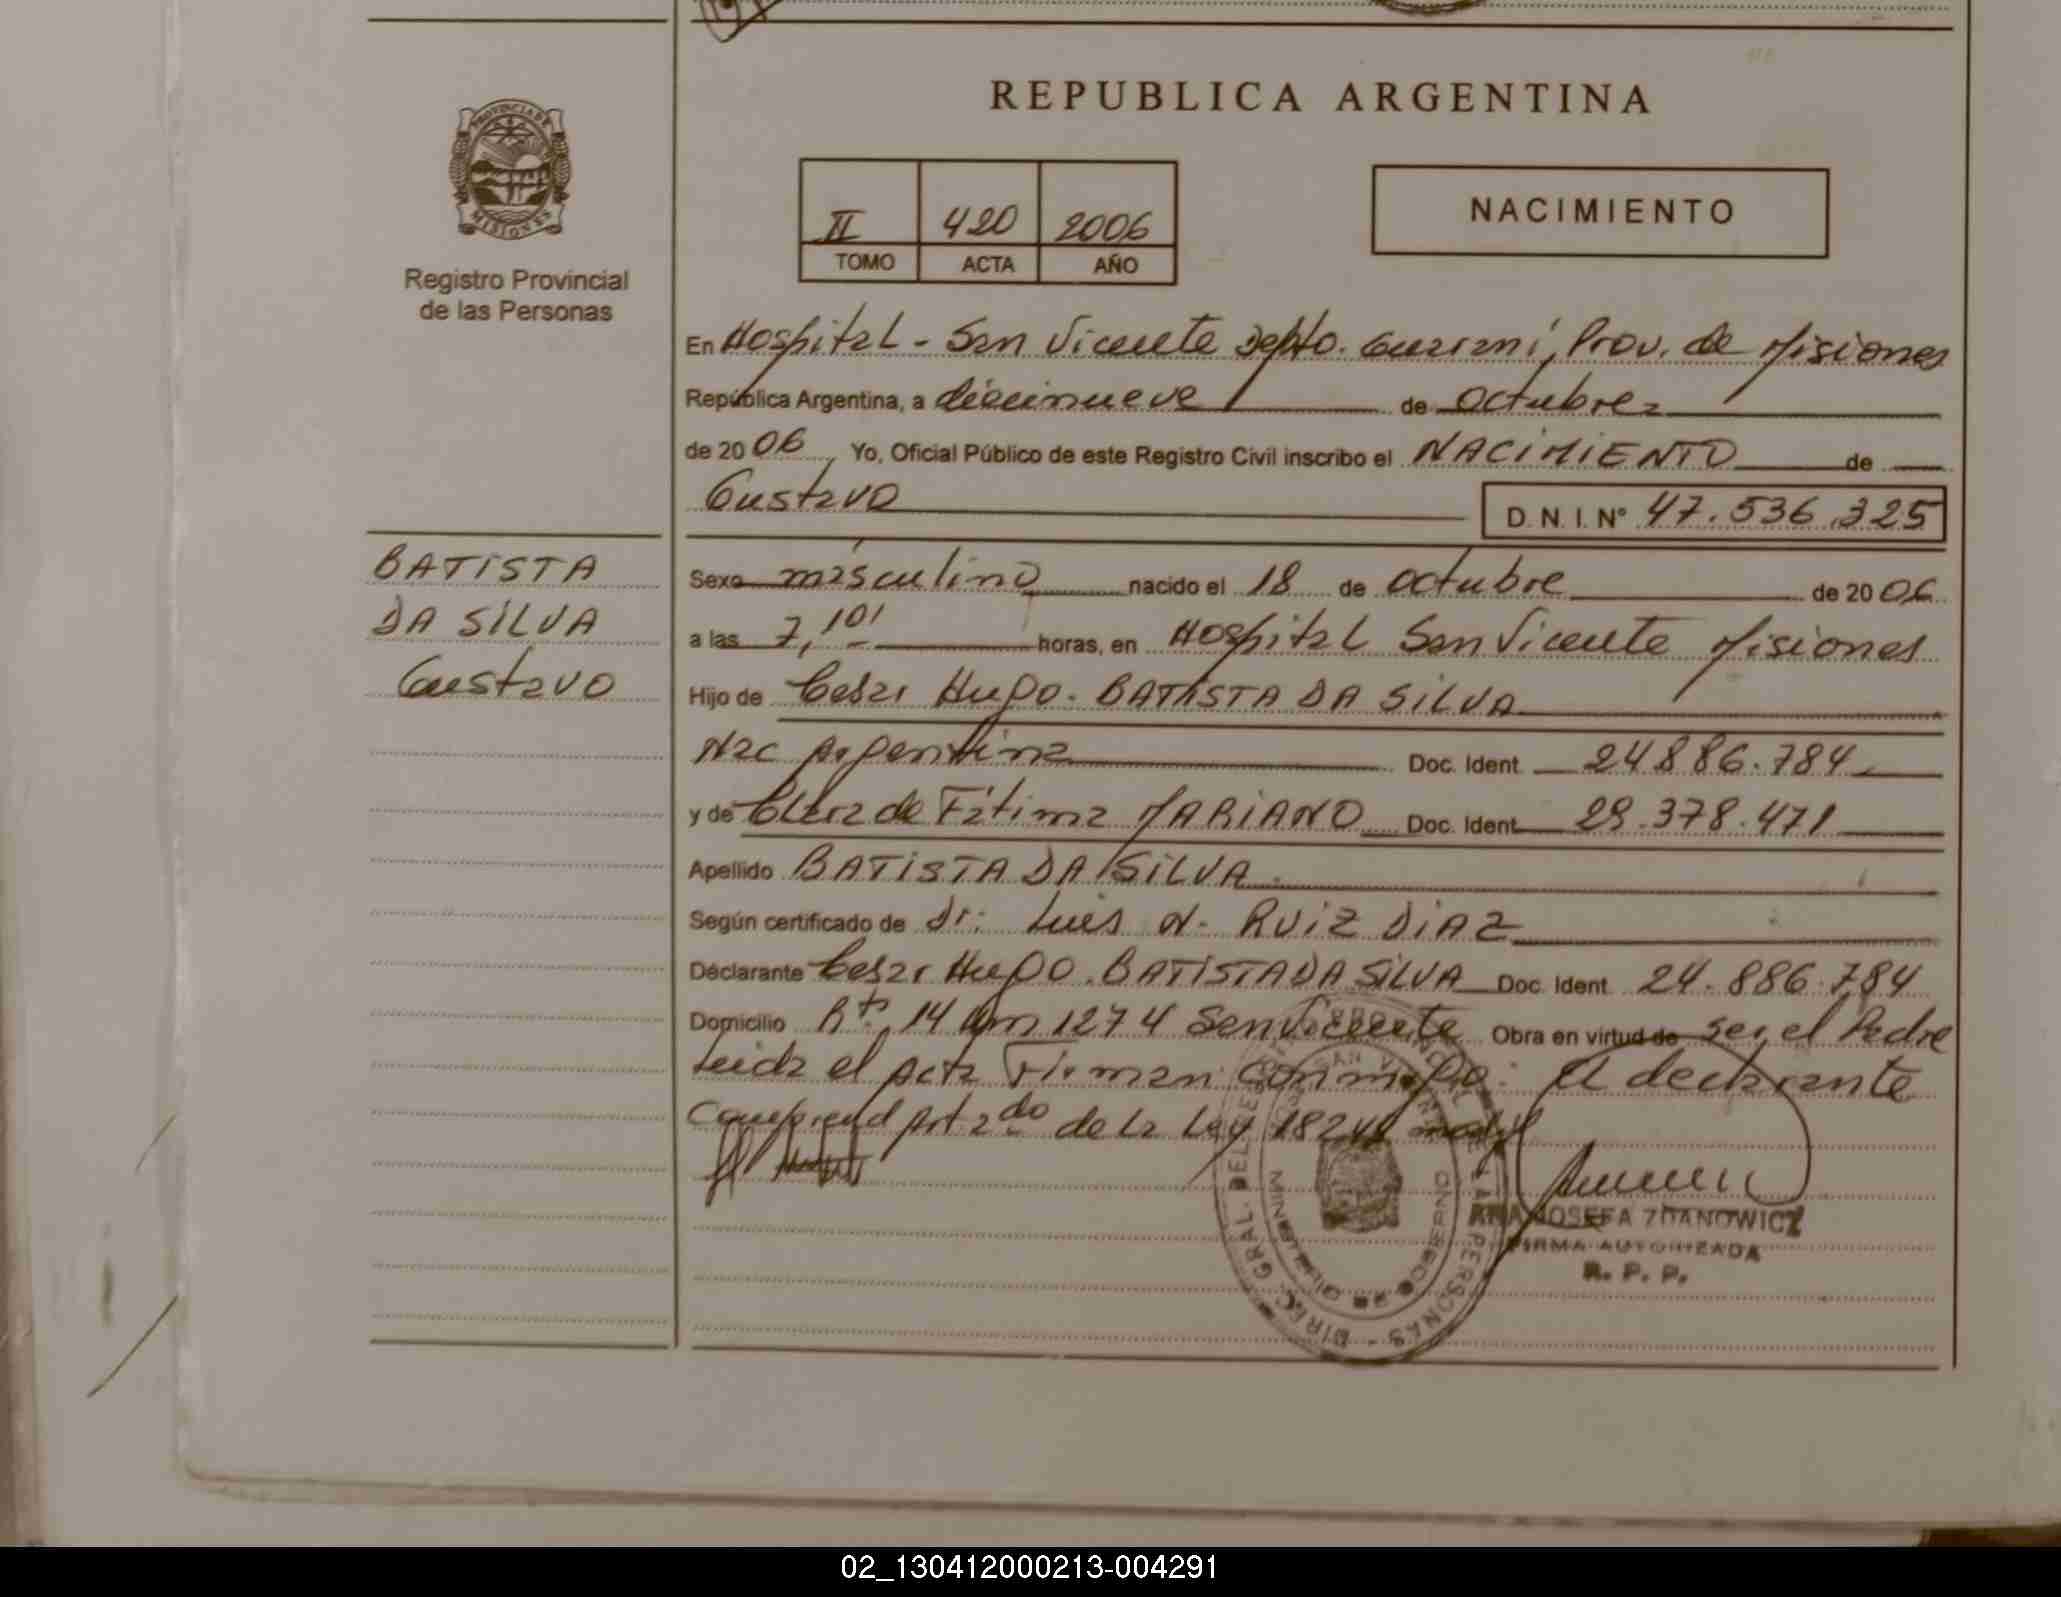 REPUBLICA ARGENTINA
PROVINCIA DE
MISIONES
Registro Provincial
de las Personas
II 420 2006
TOMO ACTA AÑO
NACIMIENTO
En Hospital - San Vicente Depto. Guaraní, Prov. de Misiones
República Argentina, a diecinueve de octubre
de 2006 Yo, Oficial Público de este Registro Civil inscribo el NACIMIENTO de
Gustavo
D.N.I. N° 47.536.325
BATISTA
DA SILVA
Gustavo
Sexo masculino nacido el 18 de octubre de 2006
a las 7,10' horas, en Hospital San Vicente Misiones
Hijo de Cesar Hugo. BATISTA DA SILVA
Nac Argentina Doc. Ident. 24886.784
y de Clara de Fátima MARIANO Doc. Ident. 29.378.471
Apellido BATISTA DA SILVA.
Según certificado de Dr: Luis N. RUIZ DIAZ
Declarante Cesar Hugo. BATISTA DA SILVA Doc. Ident. 24.886.784
Domicilio Rta 14 Km 1274 San Vicente Obra en virtud de ser el Padre
Leida el Acta Firman conmigo: el declarante
Art 2do de la Ley 18248
DIREC. GRAL. DEL REG. PROVINCIAL DE LAS PERSONAS
ANA JOSEFA ZDANOWICZ
FIRMA AUTORIZADA
R. P. P.
02_130412000213-004291